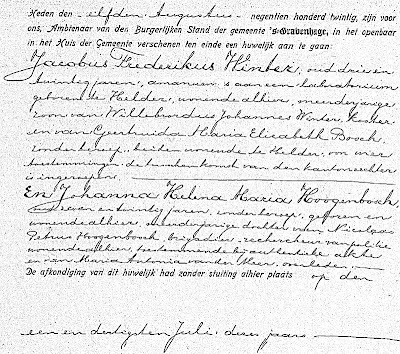 Heden den elfden Augustus negentien honderd twintig, zijn voor
ons, Ambtenaar van den Burgerlijken Stand der gemeente 's-Gravenhage, in het openbaar
in het Huis der Gemeente verschenen ten einde een huwelijk aan te gaan:
Jacobus Frederikus Winter, oud drie en
twintig jaren, amanuensis aan een laboratorium
geboren te Helder, wonende alhier, meerderjarige
zoon van Willebrordus Johannes Winter, koster
en van Geertruida Maria Elisabeth Boock,
zonder beroep, beiden wonende te Helder, om wier
toestemming de tusschenkomst van den kantonrechter
is ingeroepen.
En Johanna Helena Maria Hoogenbosch,
oud zeven en twintig jaren, zonder beroep, geboren en
wonende alhier, meerderjarige dochter van Nicolaas
Petrus Hoogenbosch, brigadier, rechercheur van politie
wonende alhier, toestemmende bij authentieke akte
en van Maria Antonia van der Meer, overleden.
De afkondiging van dit huwelijk had zonder stuiting alhier plaats op den
een en dertigsten Juli dezes jaars